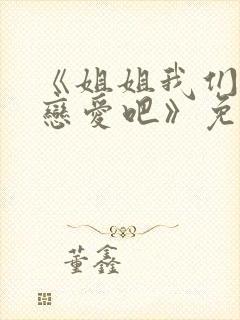 《姐姐我们
戀愛吧》免
董鑫